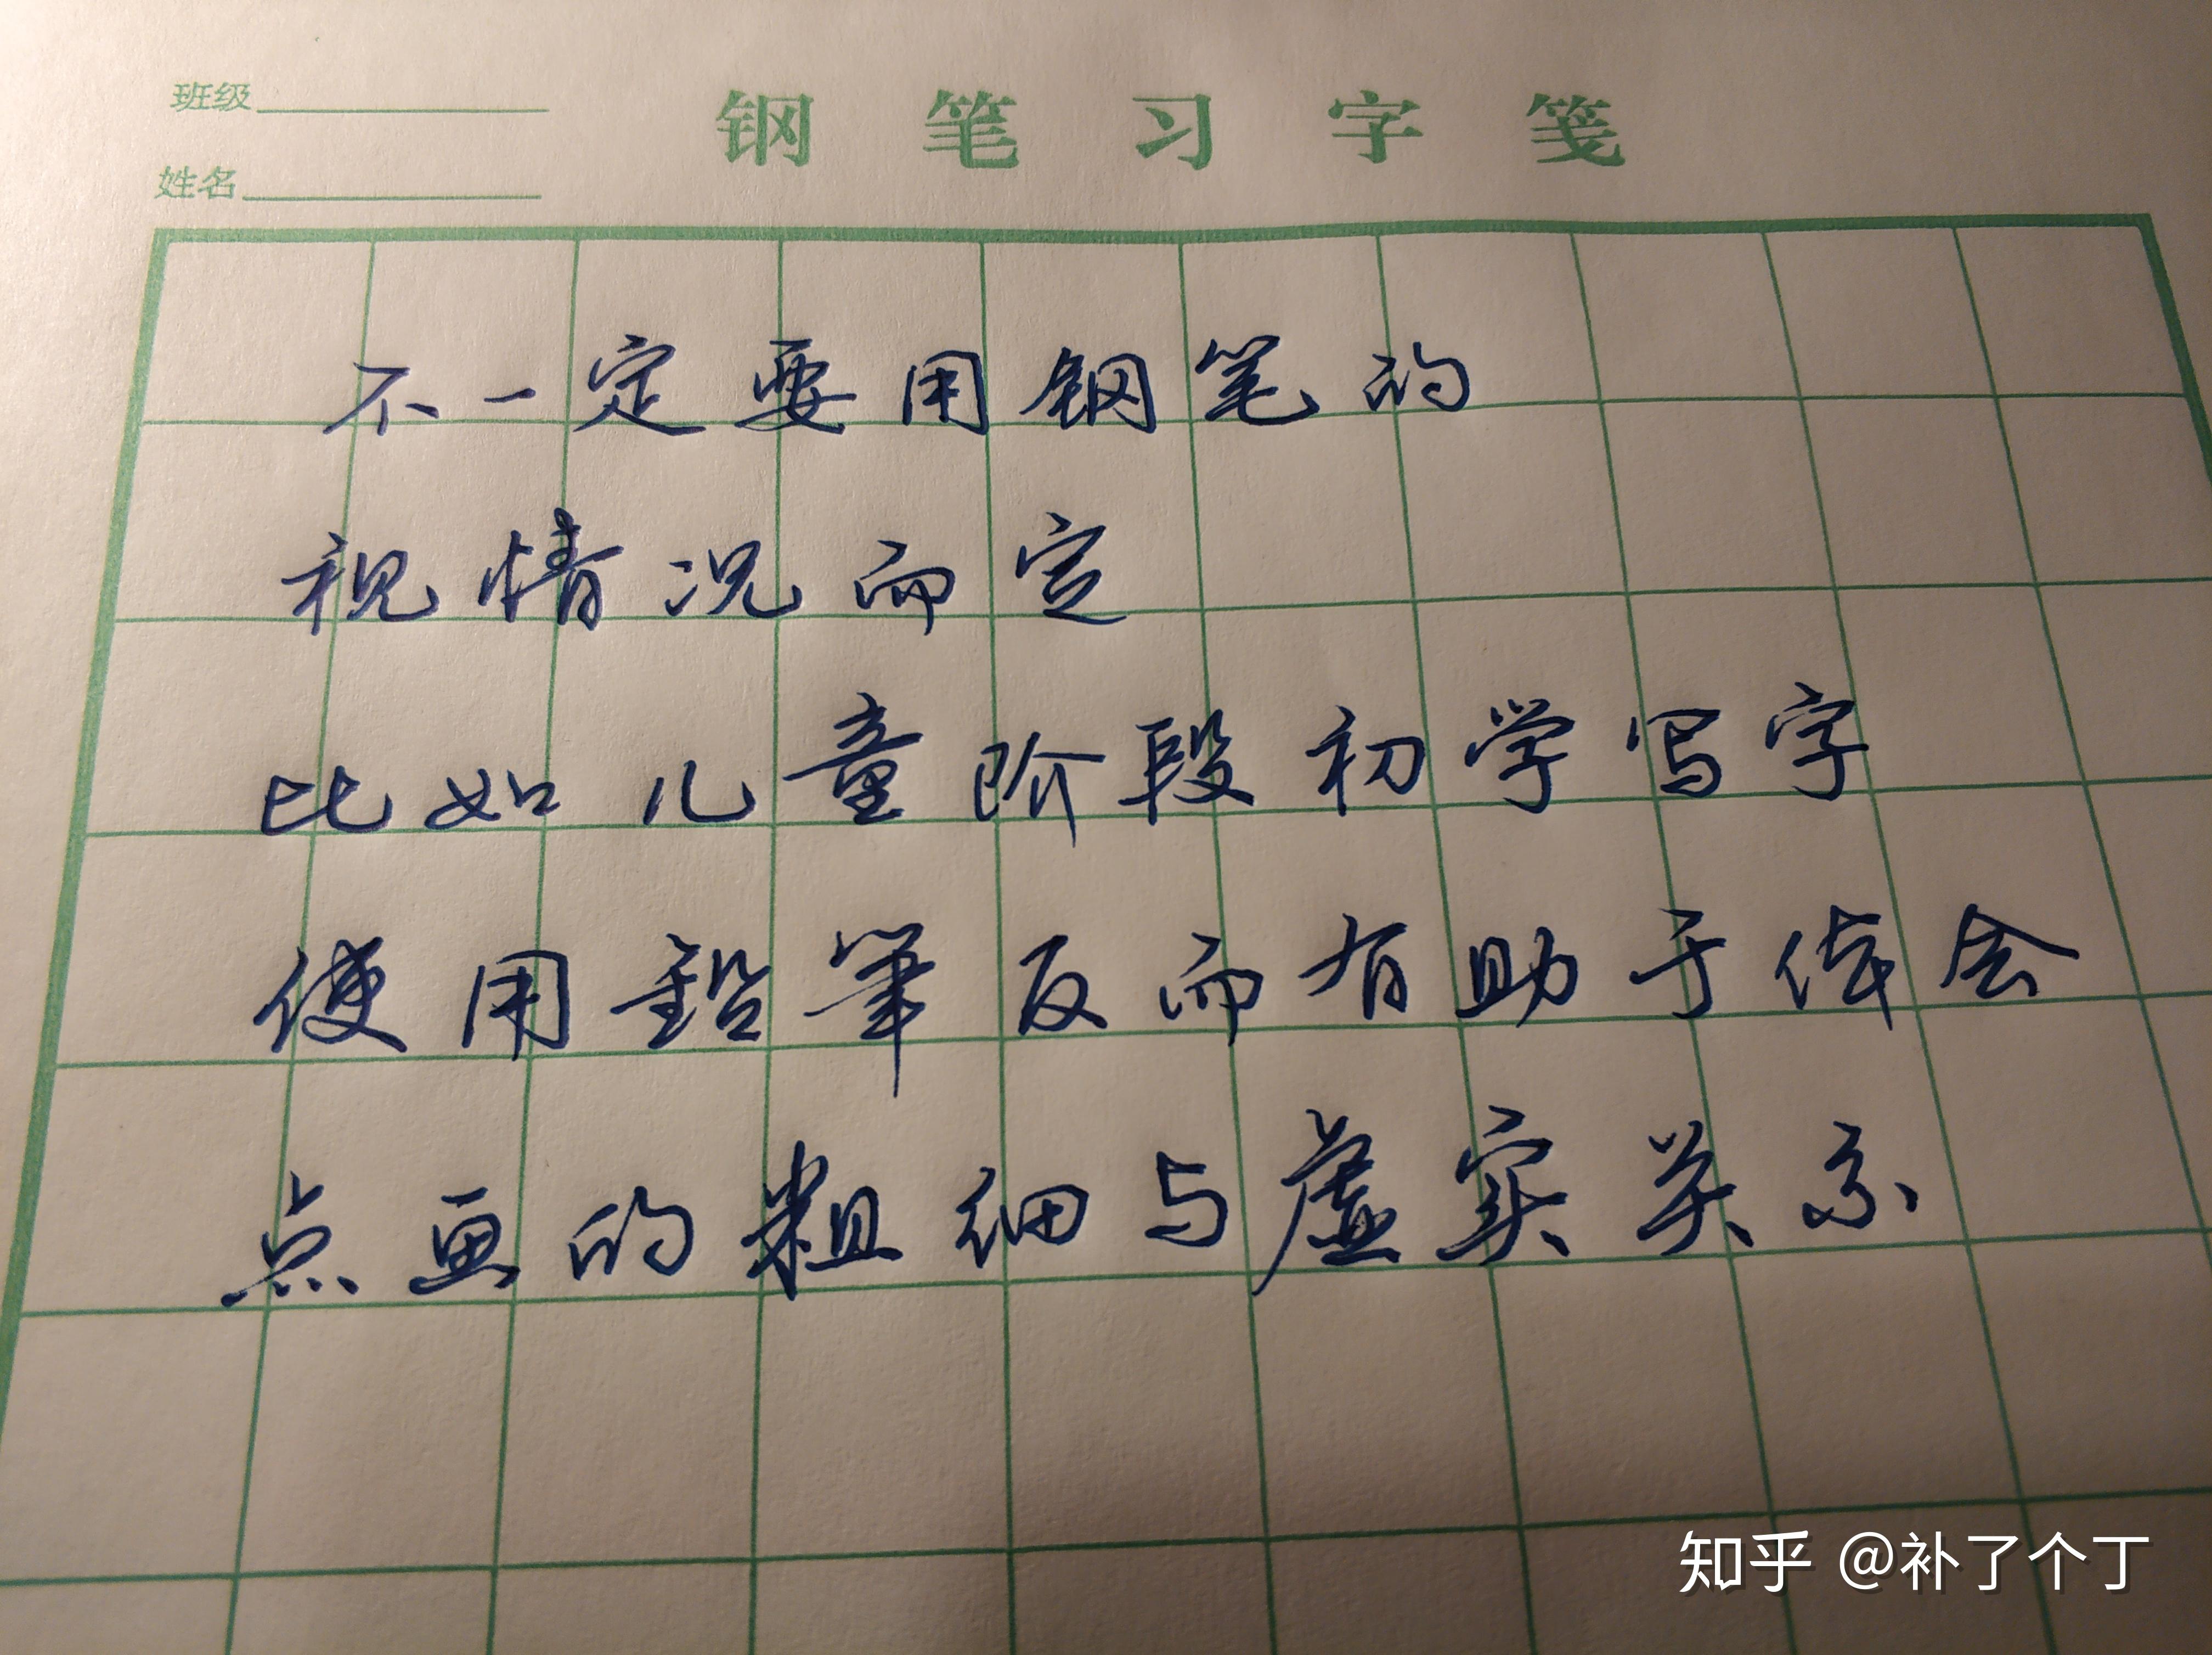 班级
钢笔习字笺
姓名
不一定要用钢笔的
视情况而定
比如儿童阶段初学写字
使用鉛筆反而有助于体会
点画的粗细与虚实关系
知乎 @补了个丁